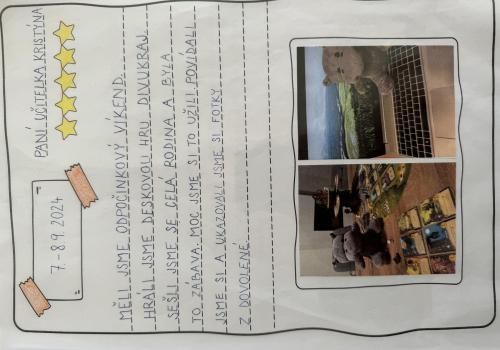 7.-8.9.2024
PANÍ UČITELKA KRISTÝNA
MĚLI JSME ODPOČINKOVÝ VÍKEND.
HRÁLI JSME DESKOVOU HRU DIVUKRAJ.
SEŠLI JSME SE CELÁ RODINA A BYLA
TO ZÁBAVA. MOC JSME SI TO UŽILI, POVÍDALI
JSME SI A UKAZOVALI JSME SI FOTKY
Z DOVOLENÉ